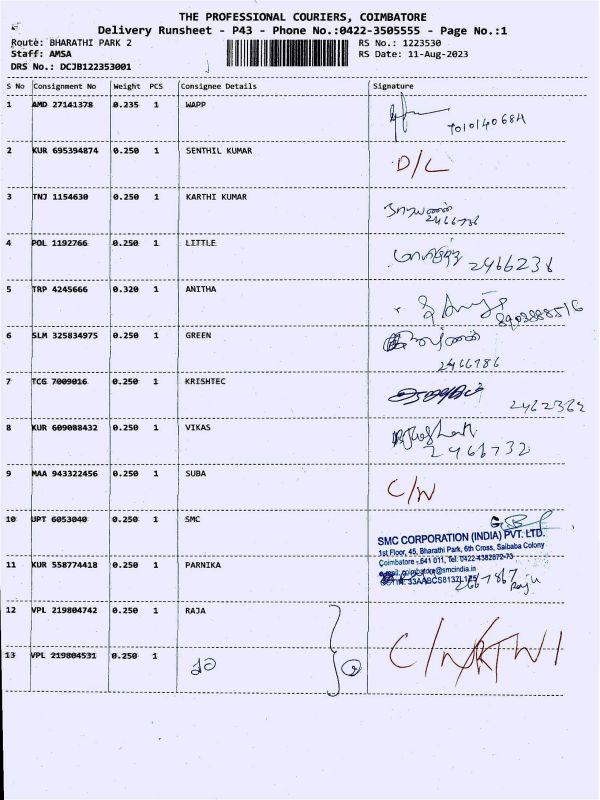 THE PROFESSIONAL COURIERS, COIMBATORE
Delivery Runsheet - P43 - Phone No.:0422-3505555 - Page No.:1
Route: BHARATHI PARK 2 RS No.: 1223530
Staff: AMSA RS Date: 11-Aug-2023
DRS No.: DCJB122353001
S No Consignment No Weight PCS Consignee Details Signature
1 AMD 27141378 0.235 1 WAPP
7010140684
2 KUR 695394874 0.250 1 SENTHIL KUMAR D/L
3 TNJ 1154630 0.250 1 KARTHI KUMAR
நாராயணன்
2466786
4 POL 1192766 0.250 1 LITTLE 2466238
5 TRP 4245666 0.320 1 ANITHA
8903888516
6 SLM 325834975 0.250 1 GREEN
2466786
7 TCG 7009016 0.250 1 KRISHTEC
2462362
8 KUR 609088432 0.250 1 VIKAS
2466732
9 MAA 943322456 0.250 1 SUBA C/W
10 UPT 6053040 0.250 1 SMC
SMC CORPORATION (INDIA) PVT. LTD.
1st Floor, 45, Bharathi Park, 6th Cross, Saibaba Colony
Coimbatore - 641 011, Tel: 0422-4382872-73
11 KUR 558774418 0.250 1 PARNIKA
e-mail: coimbatore@smcindia.in
2667867
Raju
12 VPL 219804742 0.250 1 RAJA
C/W
13 VPL 219804531 0.250 1
2